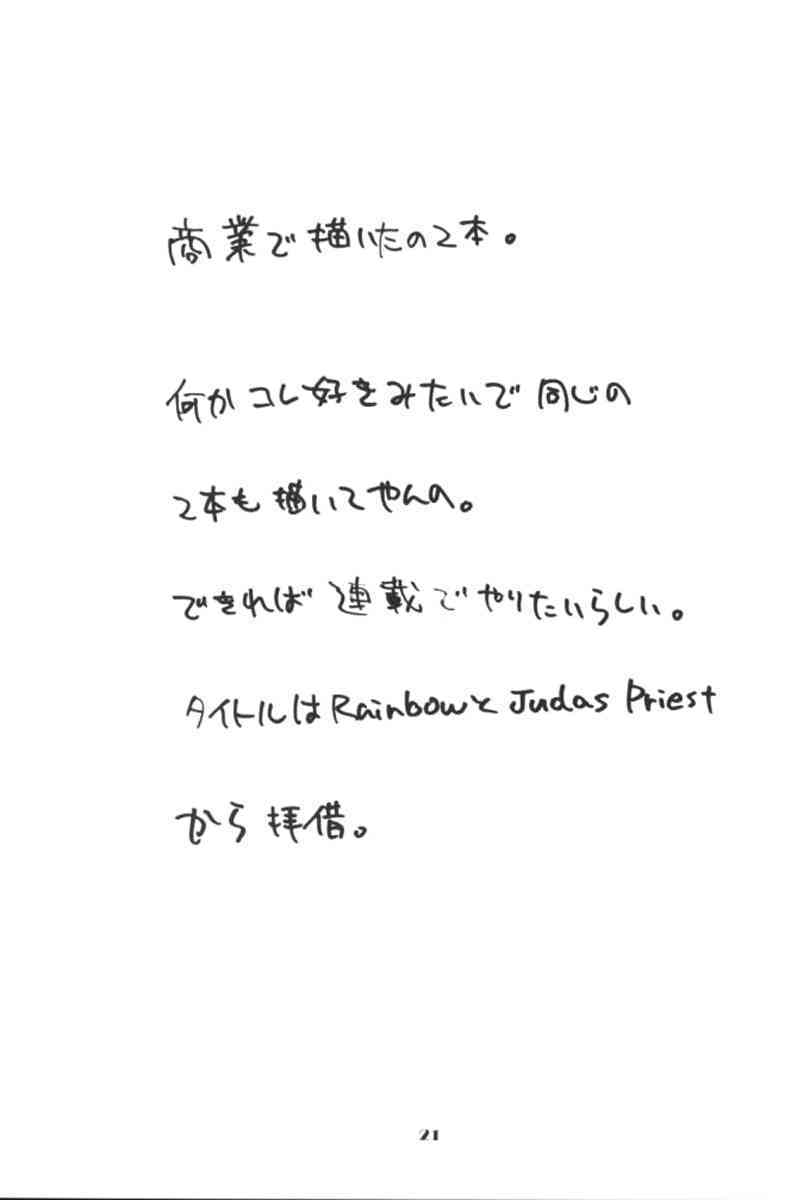 商業で描いたの2本。
何かコレ好きみたいで同じの
2本も描いてやんの。
できれば連載でやりたいらしい。
タイトルはRainbowとJudas Priest
から拝借。
21